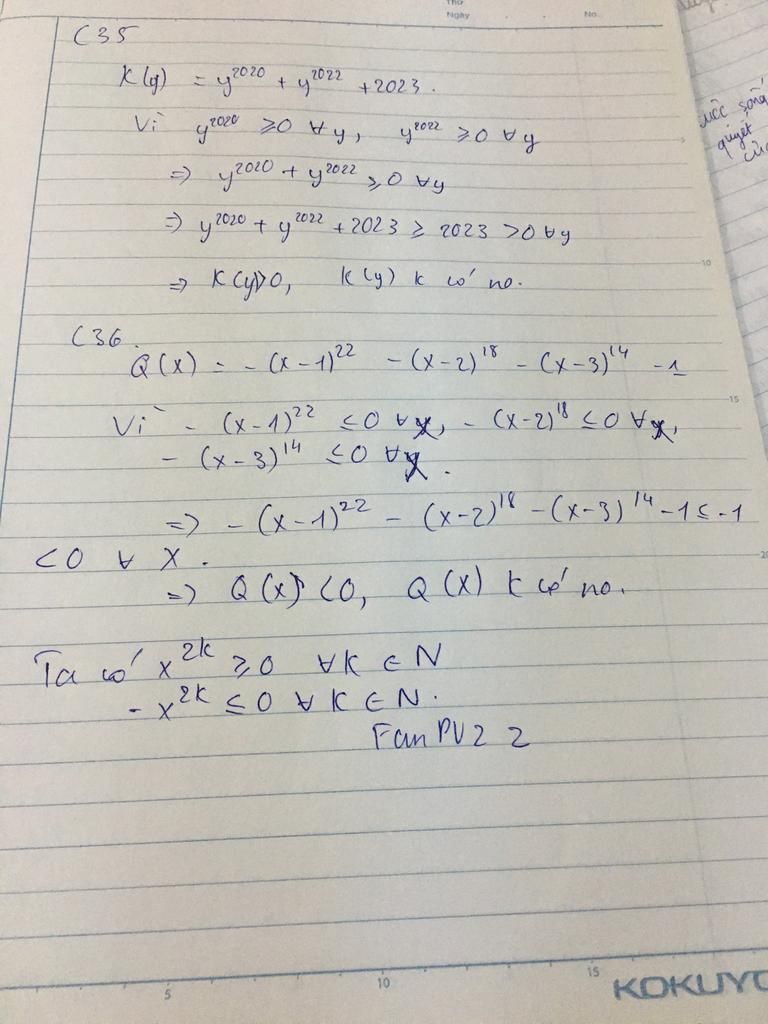 Thứ
Ngày
No.
C35
K(y) = y²⁰²⁰ + y²⁰²² + 2023.
Vì y²⁰²⁰ ≥ 0 ∀y, y²⁰²² ≥ 0 ∀y
=> y²⁰²⁰ + y²⁰²² ≥ 0 ∀y
=> y²⁰²⁰ + y²⁰²² + 2023 ≥ 2023 > 0 ∀y
=> K(y)>0, K(y) k có no.
C36.
Q(x) = -(x-1)²² -(x-2)¹⁸ -(x-3)¹⁴ -1
Vì -(x-1)²² ≤ 0 ∀x, -(x-2)¹⁸ ≤ 0 ∀x,
-(x-3)¹⁴ ≤ 0 ∀x.
=> -(x-1)²² -(x-2)¹⁸ -(x-3)¹⁴ -1 ≤ -1
<0 ∀ x.
=> Q(x) <0, Q(x) k có no.
Ta có x²ᵏ ≥ 0 ∀k ∈ N
-x²ᵏ ≤ 0 ∀k ∈ N.
Fan PV2 2
10
15
20
5
10
15
KOKUYO
quyết